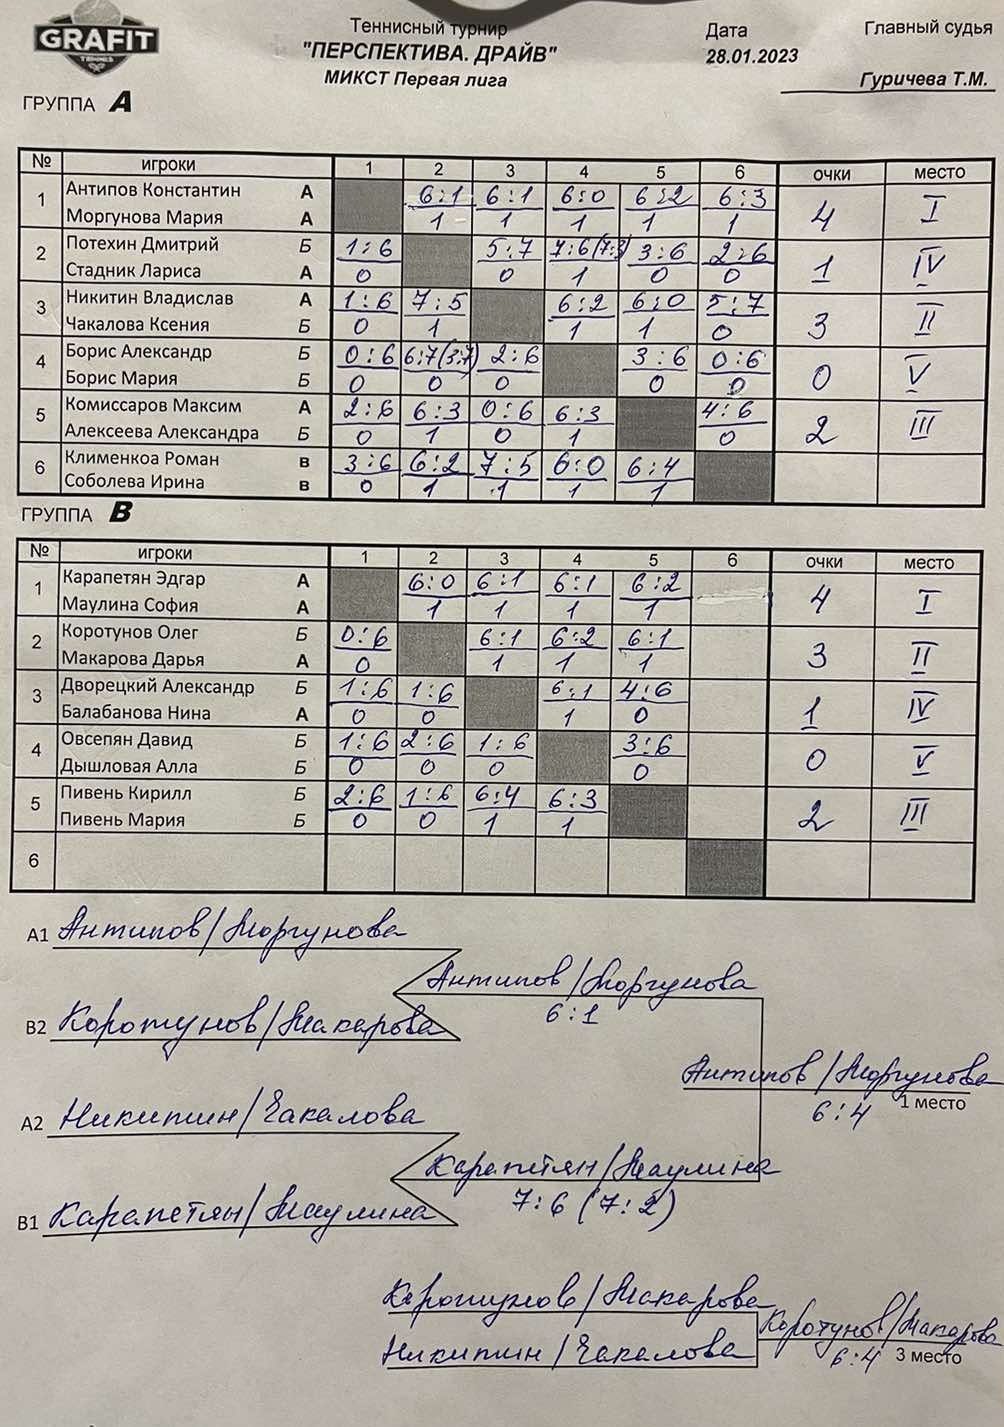 GRAFIT
TENNIS
Теннисный турнир
"ПЕРСПЕКТИВА. ДРАЙВ"
МИКСТ Первая лига
Дата
28.01.2023
Главный судья
Гуричева Т.М.
ГРУППА A
№ игроки 1 2 3 4 5 6 очки место
1 Антипов Константин А 6:1 6:1 6:0 6:2 6:3 4 I
Моргунова Мария А 1 1 1 1 1
2 Потехин Дмитрий Б 1:6 5:7 7:6(7:3) 3:6 2:6 1 IV
Стадник Лариса А 0 0 1 0 0
3 Никитин Владислав А 1:6 7:5 6:2 6:0 5:7 3 II
Чакалова Ксения Б 0 1 1 1 0
4 Борис Александр Б 0:6 6:7(3:7) 2:6 3:6 0:6 0 V
Борис Мария Б 0 0 0 0 0
5 Комиссаров Максим А 2:6 6:3 0:6 6:3 4:6 2 III
Алексеева Александра Б 0 1 0 1 0
6 Клименкоа Роман в 3:6 6:2 7:5 6:0 6:4
Соболева Ирина в 0 1 1 1 1
ГРУППА B
№ игроки 1 2 3 4 5 6 очки место
1 Карапетян Эдгар А 6:0 6:1 6:1 6:2 4 I
Маулина София А 1 1 1 1
2 Коротунов Олег Б 0:6 6:1 6:2 6:1 3 II
Макарова Дарья А 0 1 1 1
3 Дворецкий Александр Б 1:6 1:6 6:1 4:6 1 IV
Балабанова Нина А 0 0 1 0
4 Овсепян Давид Б 1:6 2:6 1:6 3:6 0 V
Дышловая Алла Б 0 0 0 0
5 Пивень Кирилл Б 2:6 1:6 6:4 6:3 2 III
Пивень Мария Б 0 0 1 1
6
A1 Антипов/Моргунова
Антипов/Моргунова
6:1
B2 Коротунов/Макарова
Антипов/Моргунова
6:4 1 место
A2 Никитин/Чакалова
Карапетян/Маулина
7:6 (7:2)
B1 Карапетян/Маулина
Коротунов/Макарова
Коротунов/Макарова
Никитин/Чакалова
6:4 3 место